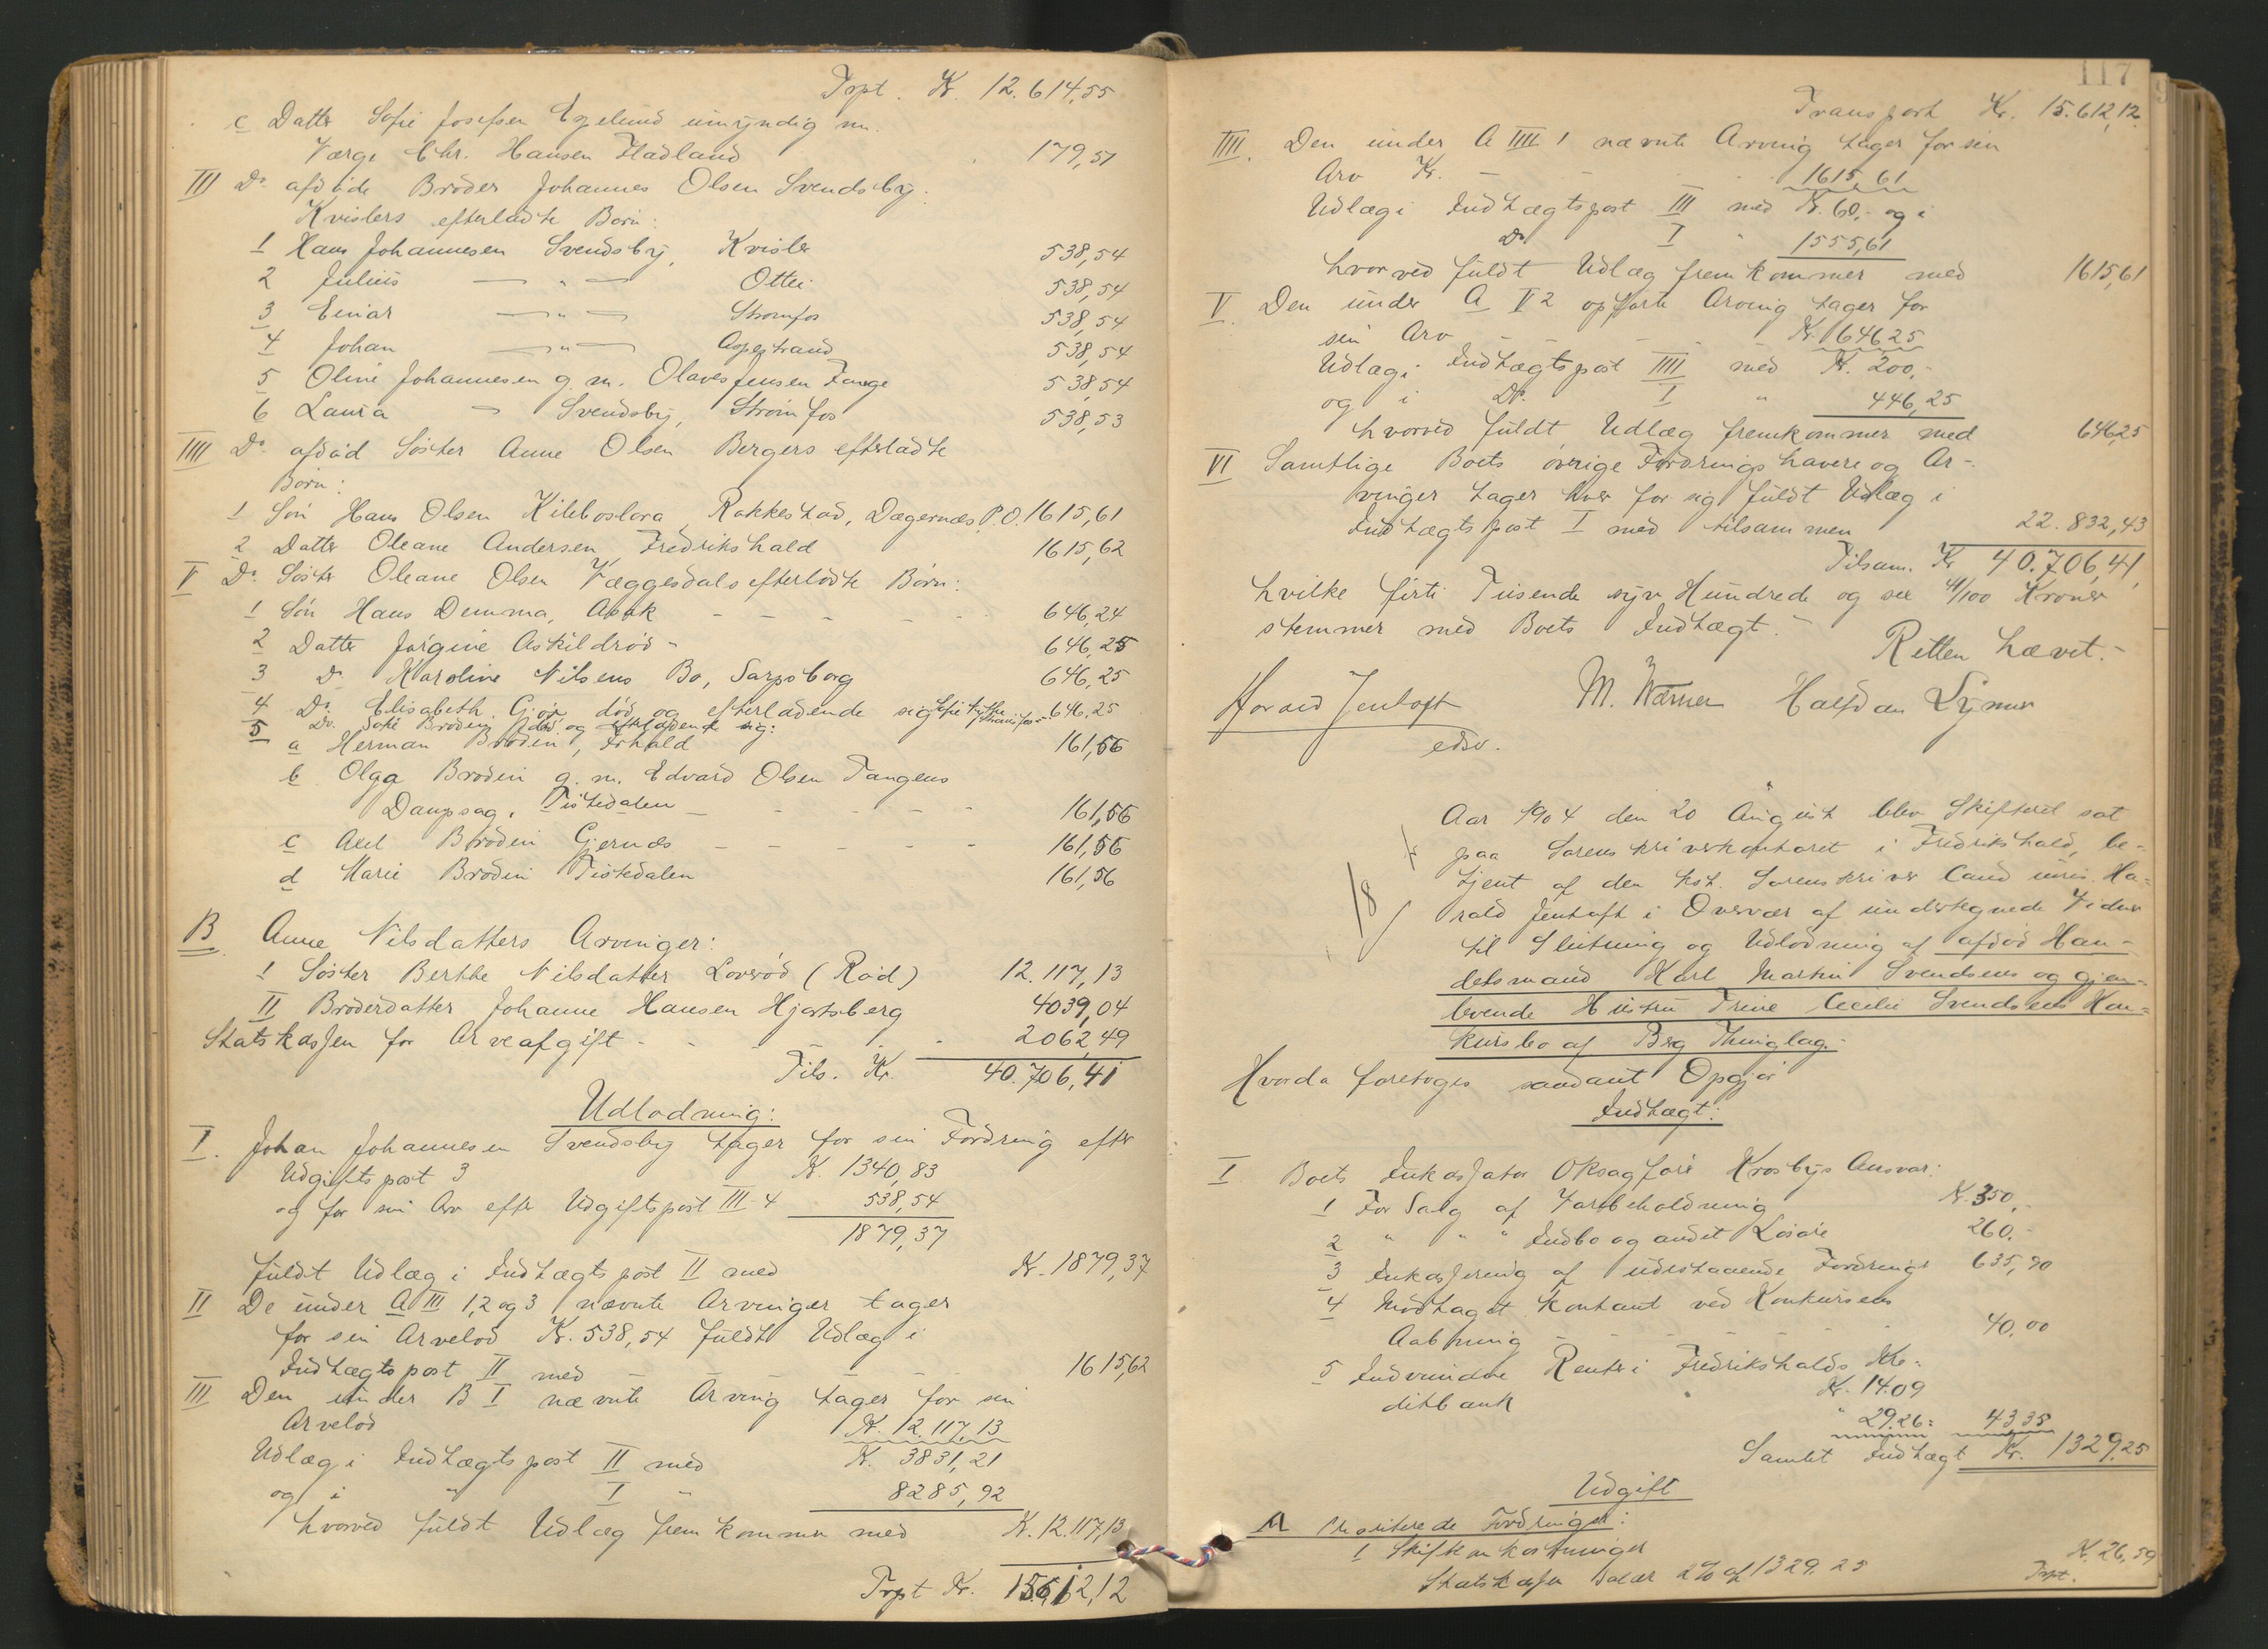 Trpt. Kr. 12.614,55
c Datter Sofie Josefsen Egelund umyndig m.
Værge Chr. Hansen Fladland 179,51
III Do afdøde Broder Johannes Olsen Svendsby
Kvislers efterladte Børn:
1 Hans Johannesen Svendsby, Kvisler 538,54
2 Julius — " — Ottei 538,54
3 Einar — " — Strømfos 538,54
4 Johan — " — Aspestrand 538,54
5 Oline Johannesen g. m. Olaves Jensen Tange 538,54
6 Laura — Svendsby, Strømfos 538,53
IIII Do afdød Søster Anne Olsen Bergers efterladte
Børn:
1 Søn Hans Olsen Kileboslora, Rakkestad, Dægernæs P.O. 1615,61
2 Datter Oleane Andersen, Fredrikshald 1615,62
V Do Søster Oleane Olsen Væggesdals efterladte Børn:
1 Søn Hans Demma, Aaak - - - - - 646,24
2 Datter Jørgine Askildrød - 646,25
3 Do Karoline Nilsens Bo, Sarpsborg 646,25
4 Do Elisabeth Gjøx død og efterladende sig 646,25
5 Do. Sofie Brødin, død og efterladende sig:
a Herman Brødin, Frhald 161,56
b Olga Brødin g. m. Edvard Olsen Tangens
Dampsag, Tistedalen - - - - - 161,56
c Axel Brødin Gjernæs - - - - - 161,56
d Marie Brødin Tistedalen 161,56
B Anne Nilsdatters Arvinger:
I Søster Berthe Nilsdatter Loverød (Rød) 12.117,13
II Broderdatter Johanne Hansen Hjortsberg 4039,04
Statskassen for Arveafgift - - - - 2062,49
Tils. Kr. 40.706,41
Udlodning:
I. Johan Johannesen Svendsby tager for sin Fordring efter
Udgiftspost 3 K. 1340,83
og for sin Arv efter Udgiftspost III-4 538,54
1879,37
fuldt Udlæg i Indtægtspost II med Kr. 1879,37
II De under A III 1, 2 og 3 nævnte Arvinger tager
for sin Arvelod Kr. 538,54 fuldt Udlæg i
Indtægtspost II med - - - 1615,62
III Den under B I nævnte Arving tager for sin
Arvelod K. 12.117,13
Udlæg i Indtægtspost II med K. 3831,21
og i " I " 8285,92
hvorved fuldt Udlæg fremkommer med K. 12.117,13
Trpt Kr. 15.612,12
117
Transport Kr. 15.612,12
IIII. Den under A IIII 1 nævnte Arving tager for sin
Arv Kr. - - - 1615,61
Udlæg i Indtægtspost III med K. 60,- og i
Do I " 1555,61
hvorved fuldt Udlæg fremkommer med 1615,61
V. Den under A V 2 opførte Arving tager for
sin Arv - - - Kr. 646,25
Udlæg i Indtægtspost IIII med K. 200,-
og i Do. I " 446,25
hvorved fuldt Udlæg fremkommer med 646,25
VI Samtlige Boets øvrige Fordringshavere og Ar-
vinger tager hver for sig fuldt Udlæg i
Indtægtspost I med tilsammen 22.832,43
Tilsam. Kr 40.706,41,
hvilke firti Tusende syv Hundrede og sex 41/100 Kroner
stemmer med Boets Indtægt.-
Retten hævet.-
Harald Jentoft M. Warner Halfdan Lyner
edsv.
Aar 1904 den 20 August blev Skifteret sat
paa Sorenskriverkontoret i Fredrikshald, be-
tjent af den kst. Sorenskriver Cand juris. Ha-
rald Jentoft i Overvær af undertegnede Vidner
til Slutning og Udlodning af afdød Han-
delsmand Karl Martin Svendsens og gjen-
levende Hustru Trine Cecilie Svendsens Kon-
kursbo af Berg Thinglag.-
Hvorda foretoges saadant Opgjør
Indtægt:
I Boets Inkassator Oksagfører Krosbys Ansvar:
1 For Salg af Varebeholdning K. 350,-
2 " " " Indbo og andet Løsøre 260,-
3 Inkassering af udestaaende Fordringer 635,90
4 Modtaget kontant ved Konkursens
Aabning - - - - - - 40,00
5 Indvundne Renter i Fredrikshalds Kre-
ditbank K. 14.09
" 29.26 = 43 35
Samlet Indtægt Kr. 1329,25
Udgift
A Prioriterede Fordringer:
1 Skifteomkostninger
Statskassen Salær 2% af 1329.25 K. 26,59
Trpt.